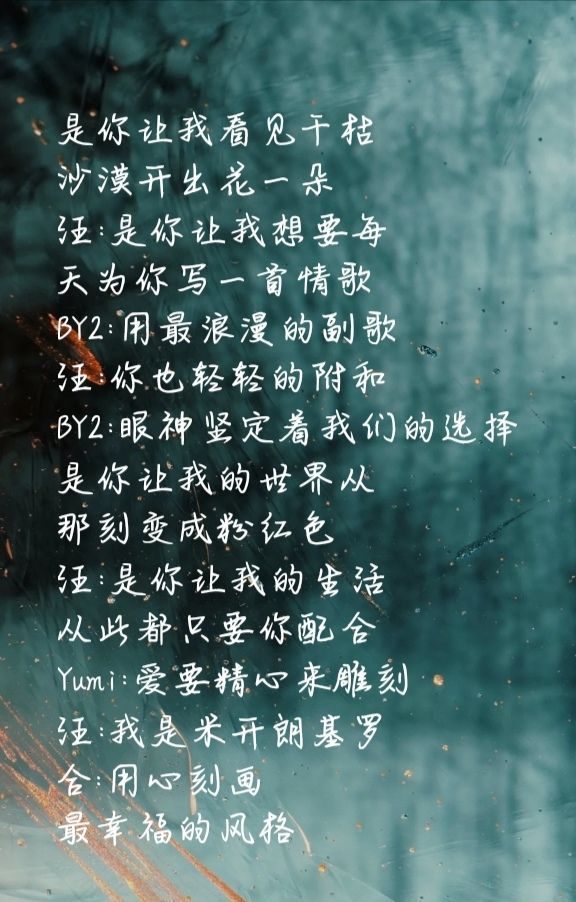 是你让我看见干枯
沙漠开出花一朵
汪:是你让我想要每
天为你写一首情歌
BY2:用最浪漫的副歌
汪:你也轻轻的附和
BY2:眼神坚定着我们的选择
是你让我的世界从
那刻变成粉红色
汪:是你让我的生活
从此都只要你配合
Yumi:爱要精心来雕刻
汪:我是米开朗基罗
合:用心刻画
最幸福的风格